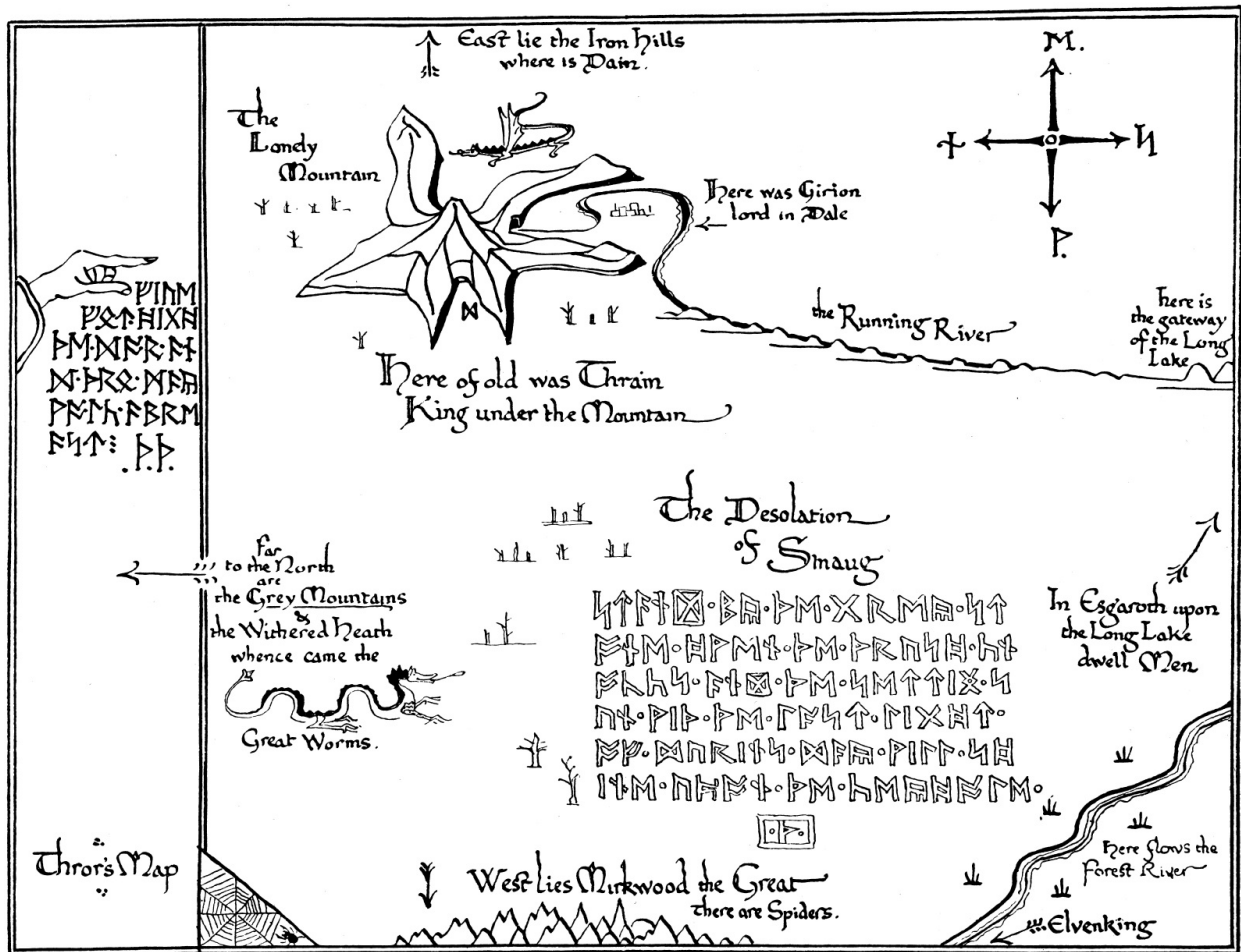 East lie the Iron Hills
where is Dain.
ᛖ.
ᚾ
ᛋ
ᚹ.
The
Lonely
Mountain
Here was Girion
lord in Dale
ᛞ
the Running River
here is
the gateway
of the Long
Lake
Here of old was Thrain
King under the Mountain
ᚠᛁᚢᛖ
ᚠᛟᛏᚻᛁᚷᚻ
ᚦᛖ᛫ᛞᚩᚱ᛫ᚪᚾ
ᛞ᛫ᚦᚱᛟ᛫ᛗᚪᚣ
ᚹᚪᛚᚳ᛫ᚪᛒᚱᛖ
ᚪᛋᛏ⁝
.ᚦ.ᚦ.
The Desolation
of Smaug
Far
to the North
are
the Grey Mountains
&
the Withered Heath
whence came the
Great Worms.
ᛋᛏᚪᚾᛞ᛫ᛒᚣ᛫ᚦᛖ᛫ᚷᚱᛖᚣ᛫ᛋᛏ
ᚩᚾᛖ᛫ᚻᚹᛖᚾ᛫ᚦᛖ᛫ᚦᚱᚢᛋᚻ᛫ᚳᚾ
ᚩᚳᚳᛋ᛫ᚪᚾᛞ᛫ᚦᛖ᛫ᛋᛖᛏᛏᛁᛝ᛫ᛋ
ᚢᚾ᛫ᚹᛁᚦ᛫ᚦᛖ᛫ᛚᚪᛋᛏ᛫ᛚᛁᚷᚻᛏ᛫
ᚩᚠ᛫ᛞᚢᚱᛁᚾᛋ᛫ᛞᚪᚣ᛫ᚹᛁᛚᛚ᛫ᛋᚻ
ᛁᚾᛖ᛫ᚢᛈᚩᚾ᛫ᚦᛖ᛫ᚳᛖᚣᚻᚩᛚᛖ᛫
᛫ᚦ᛫
In Esgaroth upon
the Long Lake
dwell Men
Thror's Map
West lies Mirkwood the Great
there are Spiders.
Here flows the
Forest River
Elvenking